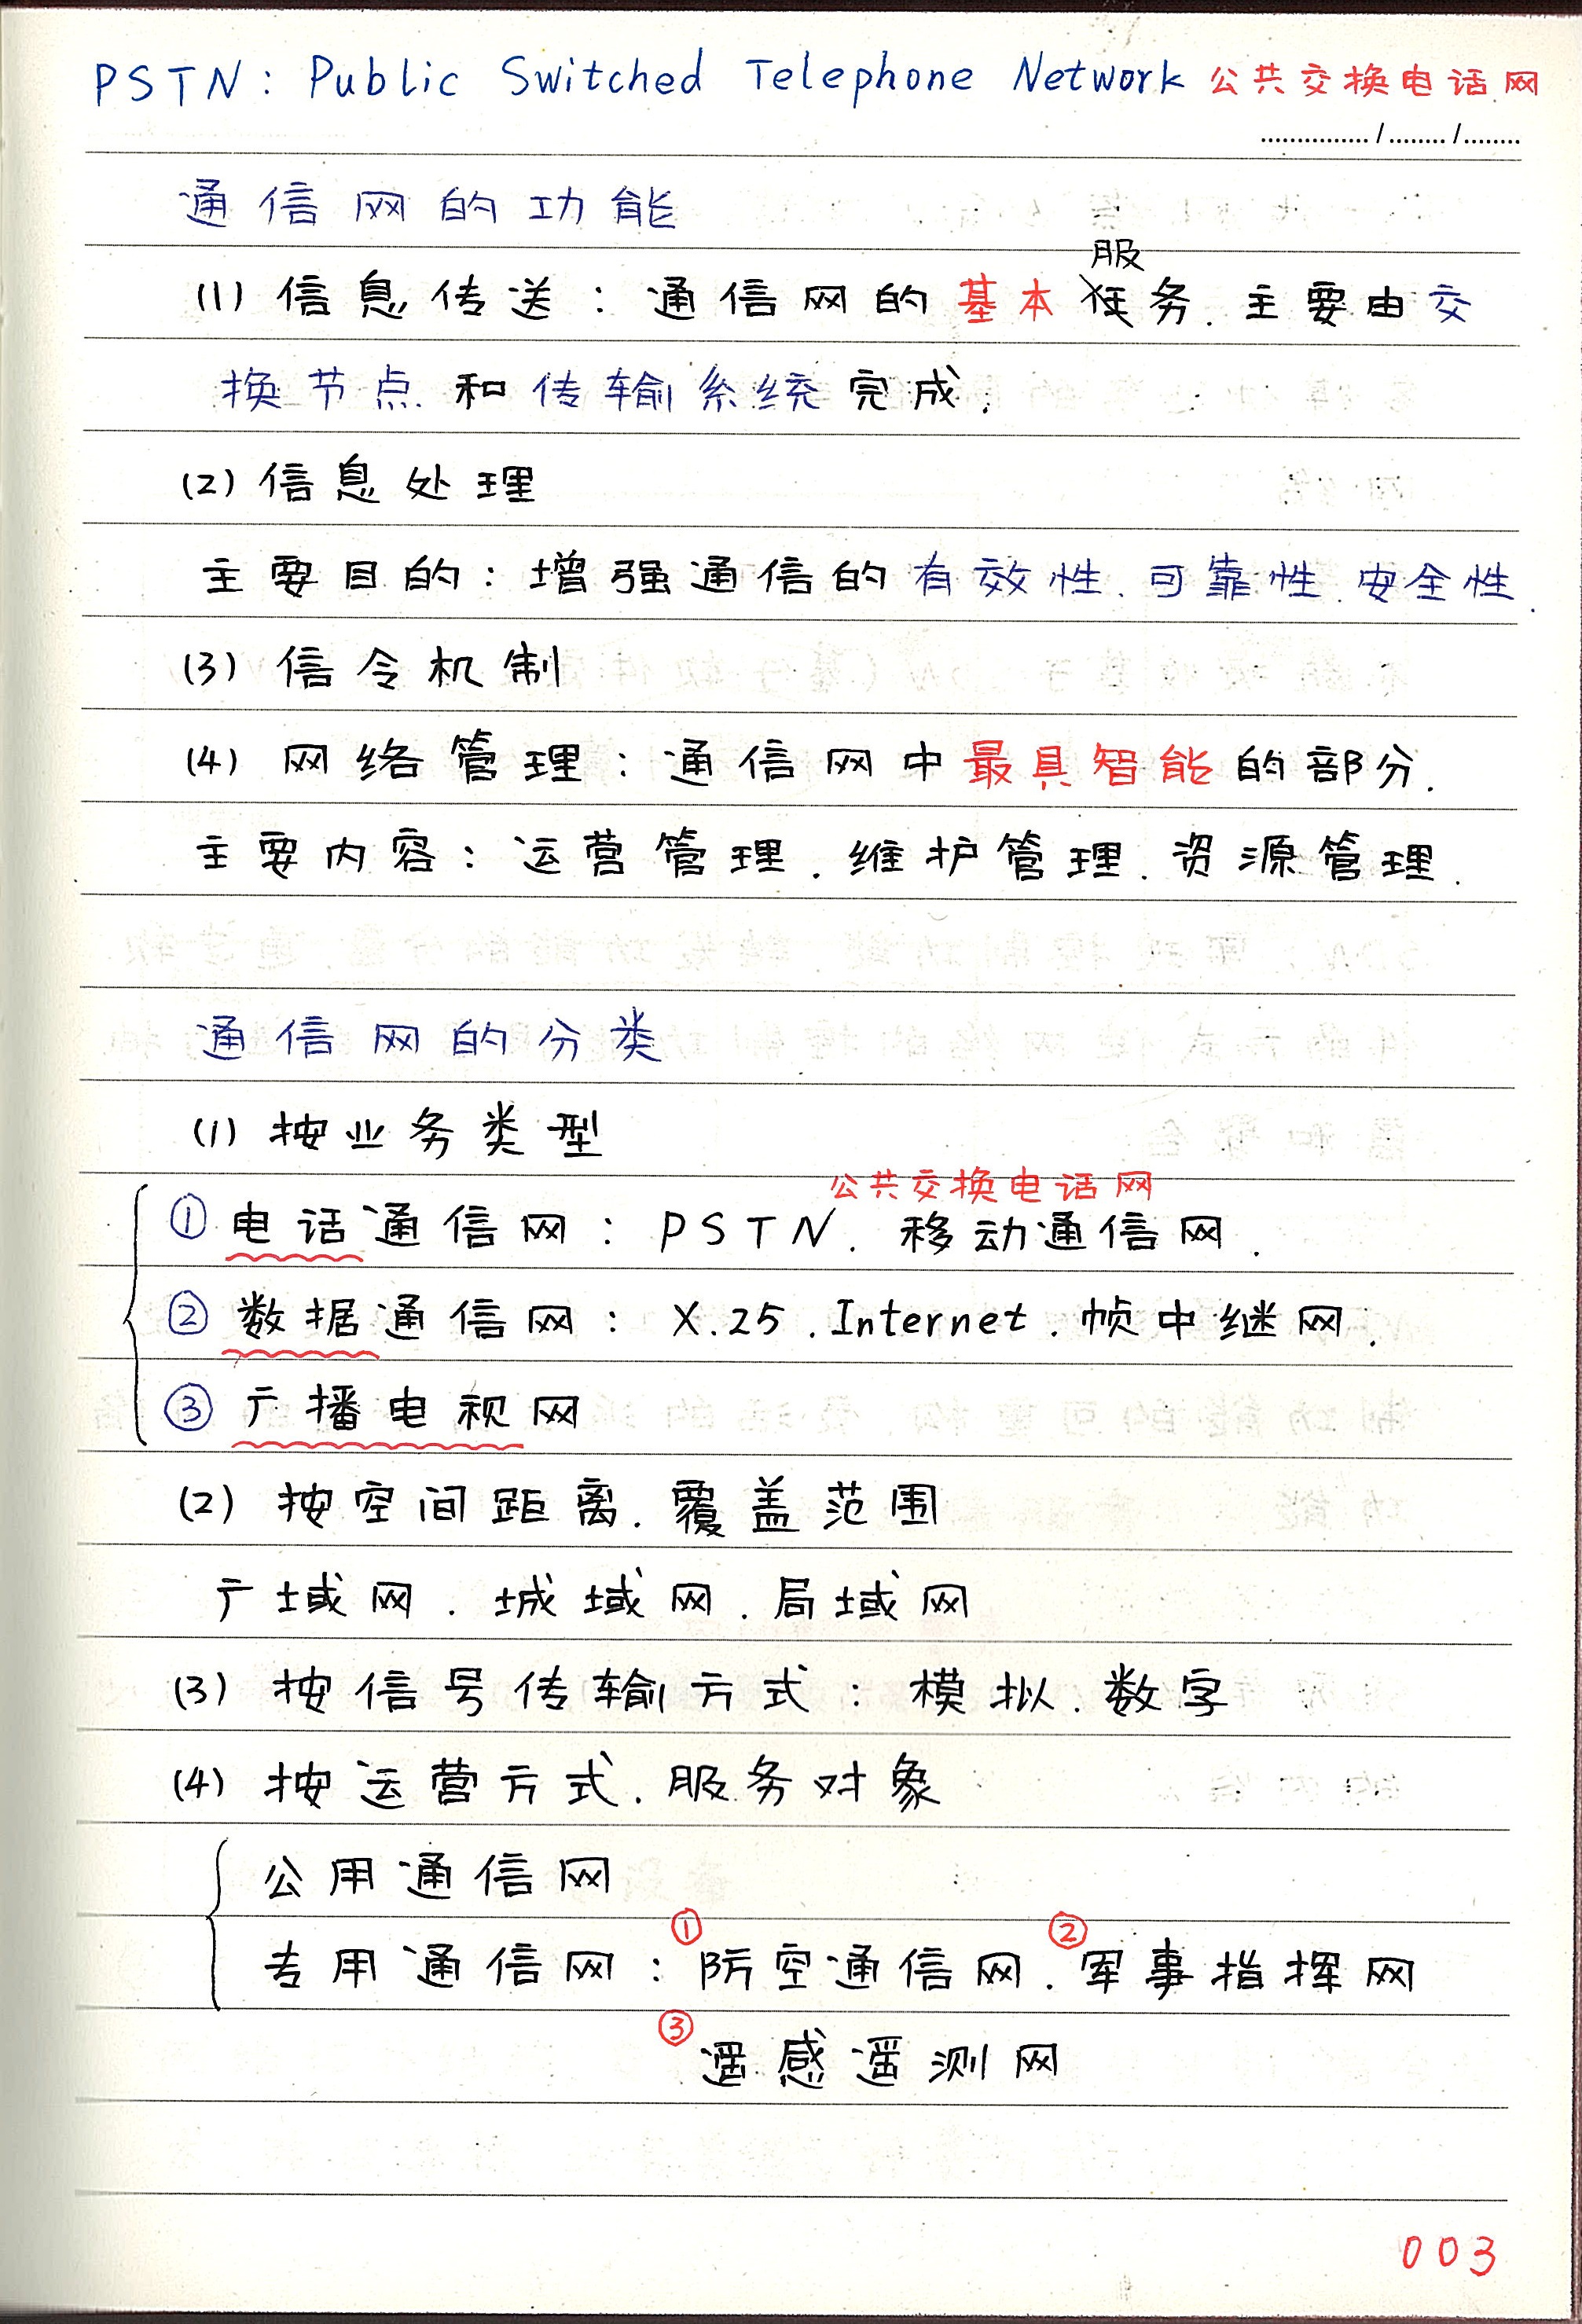 PSTN: Public Switched Telephone Network 公共交换电话网
............... / ........ / ........
通信网的功能
服
(1) 信息传送：通信网的基本任务．主要由交
换节点和传输系统完成．
(2) 信息处理
主要目的：增强通信的有效性、可靠性、安全性．
(3) 信令机制
(4) 网络管理：通信网中最具智能的部分．
主要内容：运营管理、维护管理、资源管理．
通信网的分类
(1) 按业务类型
公共交换电话网
① 电话通信网：PSTN、移动通信网．
② 数据通信网：X.25、Internet、帧中继网．
③ 广播电视网
(2) 按空间距离、覆盖范围
广域网、城域网、局域网
(3) 按信号传输方式：模拟、数字
(4) 按运营方式、服务对象
公用通信网
专用通信网：①防空通信网、②军事指挥网
③遥感遥测网
003